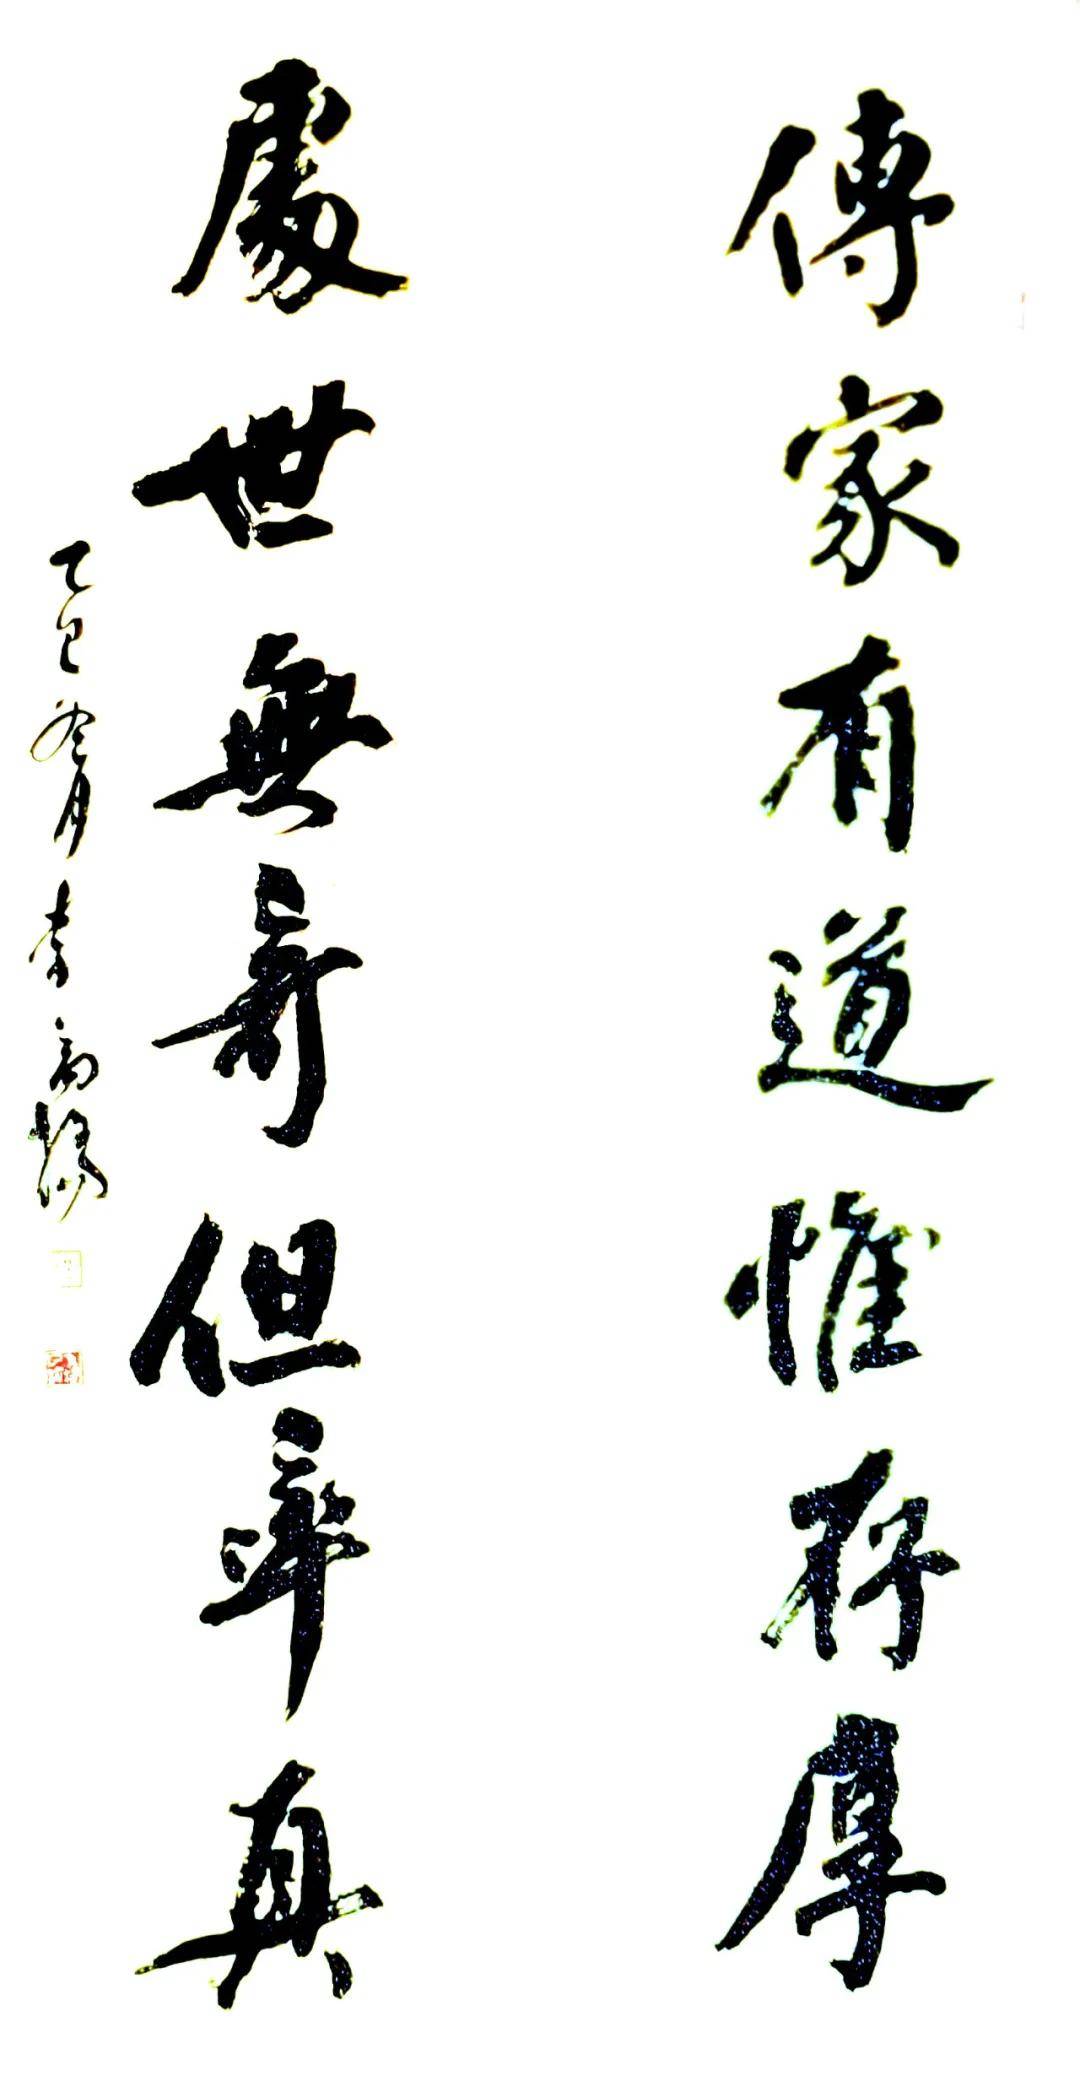 傳家有道惟存厚
處世無奇但率真
乙巳冬月李